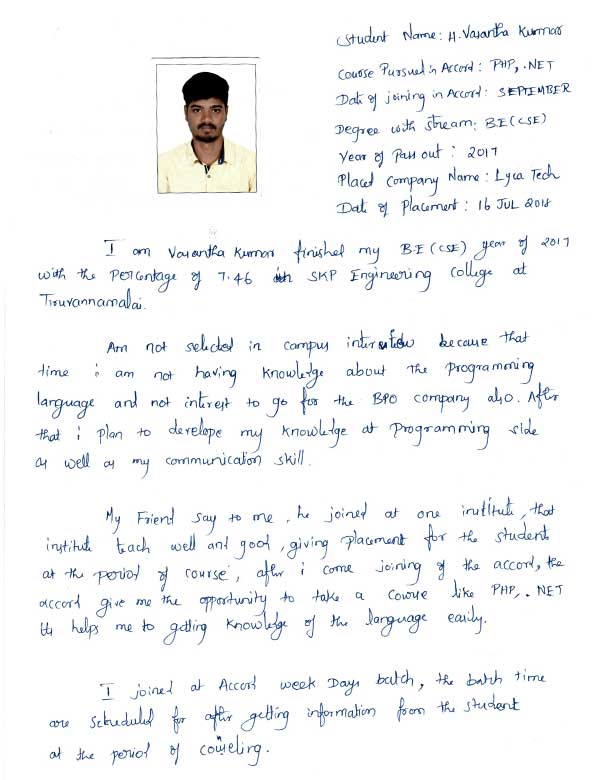 Student Name: H. Vasantha Kumar
Course Pursued in Accord: PHP, .NET
Date of joining in Accord: SEPTEMBER
Degree with stream: B.E (CSE)
Year of Pass out: 2017
Placed Company Name: Lyca Tech
Date of Placement: 16 JUL 2018
I am Vasantha Kumar finished my B.E (CSE) year of 2017
with the Percentage of 7.46 in SKP Engineering College at
Tiruvannamalai.
Am not selected in campus interview because that
time i am not having knowledge about the Programming
language and not interest to go for the BPO company also. After
that i plan to develope my knowledge at Programming side
as well as my communication skill.
My Friend say to me, he joined at one institute, that
institute teach well and good, giving placement for the students
at the period of course, after i come joining of the accord, the
accord give me the opportunity to take a course like PHP, .NET
its helps me to getting knowledge of the language easily.
I joined at Accord week Days batch, the batch time
are scheduled for after getting information from the student
at the period of counseling.